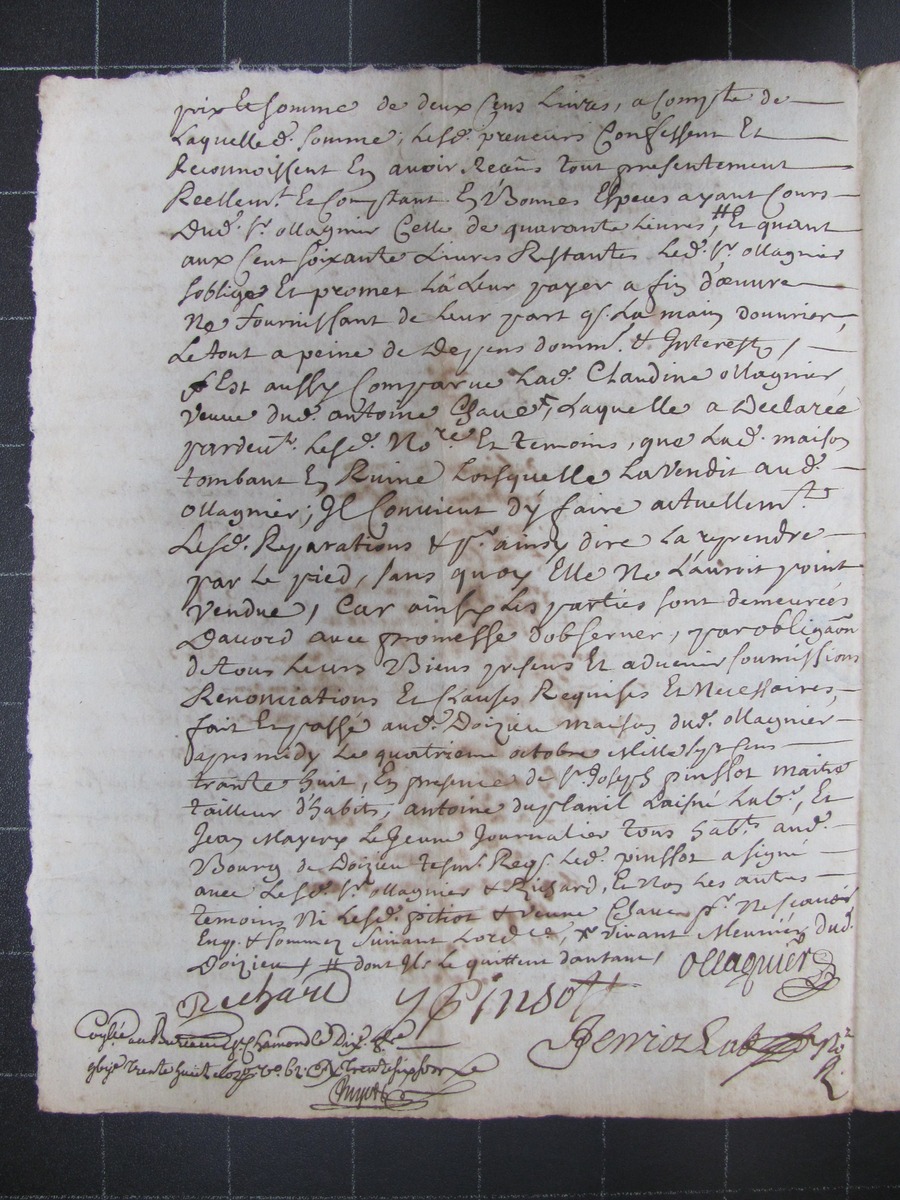 prix Et somme de deux Cens Livres, a Compte de
Laquelle d. somme, Lesd. preneurs Confessent Et
Reconnoissent En avoir Receus tout presentement
Reellem.t Et Comptant En Bonnes Especes ayant Cours
Dud. Sr. ollagnier Celle de quarante Livres,# Et quant
aux Cent soixante Livres Restantes Led. Sr. ollagnier
soblige Et promet La Leur payer a fin d'œuvre
Ne fournissant de Leur part q. La main douvrier,
Le tout a peine de Depens domm. & Interests,
Est aussy Comparue Lad. Claudine ollagnier
veuve dud. antoine Chaver, Laquelle a Declarée
pardev.t Lesd. No.re Et temoins, que Lad. maison
tombant En Ruine Lorsquelle La vendit aud.
ollagnier; Il Convient d'y faire actuellem.t
Lesd. Reparations & p.r ainsy dire La reprendre
par Le pied, sans quoy Elle Ne L'auroit point
vendue, Car ainsy Les parties sont demeurées
Daccord avec promesse d'observer, par obligaôn
de tous Leurs Biens presens Et advenir soumissions
Renonciations Et Clauses Requises Et Necessaires,
fait Et passé aud. Doizieu maison dud. ollagnier
apres midy Le quatrieme octobre Mille sept Cens
trante huit, En presence de Sr. Joseph pinssot maitre
tailleur d'habits, antoine duplanil Laisné Lab.r, Et
Jean Mayery Le Jeune Journalier tous hab.ts aud.
Bourg de Doizieu tesm. Req. Led. pinssot a signé
avec Lesd. Sr. ollagnier & Richard, Et Non Les autres
temoins Ni Lesd. pitiot & veuve Chaver p.r Ne scavoir
Enq. & sommez suivant Lord.ce, vivant Meunier dud.
Doizieu, # dont Ils Le quittent dautant,
Ollagnier
Richard
JPinsott
Copié au Bureau St Chamond le Dix
trente huit trente six sols